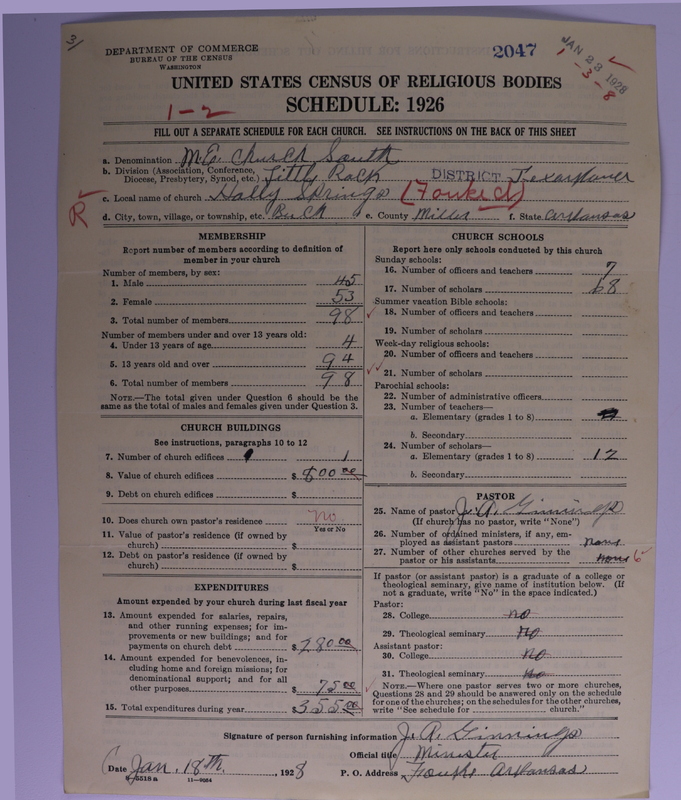 3/
DEPARTMENT OF COMMERCE
BUREAU OF THE CENSUS
WASHINGTON
2047
JAN 23 1928
1-3-8
UNITED STATES CENSUS OF RELIGIOUS BODIES
SCHEDULE: 1926
1-2
FILL OUT A SEPARATE SCHEDULE FOR EACH CHURCH. SEE INSTRUCTIONS ON THE BACK OF THIS SHEET
a. Denomination M.E. Church South
b. Division (Association, Conference, Diocese, Presbytery, Synod, etc.) Little Rock DISTRICT
R
c. Local name of church Holly Springs (Fouke Ct)
d. City, town, village, or township, etc. e. County Miller f. State Arkansas
MEMBERSHIP
Report number of members according to definition of
member in your church
Number of members, by sex:
1. Male 45
2. Female 53
3. Total number of members 98
Number of members under and over 13 years old:
4. Under 13 years of age 4
5. 13 years old and over 94
6. Total number of members 98
NOTE.—The total given under Question 6 should be
same as the total of males and females given under Question 3.
CHURCH BUILDINGS
See instructions, paragraphs 10 to 12
7. Number of church edifices 1
8. Value of church edifices $ 800 00
9. Debt on church edifices $
10. Does church own pastor's residence No
Yes or No
11. Value of pastor's residence (if owned by
church) $
12. Debt on pastor's residence (if owned by
church) $
EXPENDITURES
Amount expended by your church during last fiscal year
13. Amount expended for salaries, repairs,
and other running expenses; for im-
provements or new buildings; and for
payments on church debt $ 280 00
14. Amount expended for benevolences, in-
cluding home and foreign missions; for
denominational support; and for all
other purposes $ 75 00
15. Total expenditures during year $ 355 00
CHURCH SCHOOLS
Report here only schools conducted by this church
Sunday schools:
16. Number of officers and teachers 7
17. Number of scholars 68
Summer vacation Bible schools:
18. Number of officers and teachers
19. Number of scholars
Week-day religious schools:
20. Number of officers and teachers
21. Number of scholars
Parochial schools:
22. Number of administrative officers
23. Number of teachers—
a. Elementary (grades 1 to 8)
b. Secondary
24. Number of scholars—
a. Elementary (grades 1 to 8) 12
b. Secondary
PASTOR
25. Name of pastor J. A. Ginnings
(If church has no pastor, write "None")
26. Number of ordained ministers, if any, em-
ployed as assistant pastors none
27. Number of other churches served by the
pastor or his assistants none 6
If pastor (or assistant pastor) is a graduate of a college or
theological seminary, give name of institution below. (If
not a graduate, write "No" in the space indicated.)
Pastor:
28. College no
29. Theological seminary No
Assistant pastor:
30. College No
31. Theological seminary No
NOTE.—Where one pastor serves two or more churches,
Questions 28 and 29 should be answered only on the schedule
for one of the churches; on the schedules for the other churches,
write "See schedule for church."
Signature of person furnishing information J. A. Ginnings
Official title Minister
Date Jan. 18th, 1928 P. O. Address Fouke Arkansas
8-5518a 11-9024